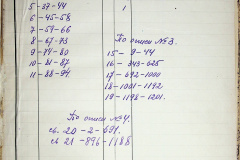 5 - 37-44
1
6 - 45-58
7 - 59-66
8 - 67-73
9 - 74-80
10 - 81-87
11 - 88-94
По описи №3.
15 - 9-44
16 - 343-625
17 - 692-1000
18 - 1001-1192
19 - 1193-1201.
По описи №4.
св. 20 - 2-691.
св 21 - 896-1188